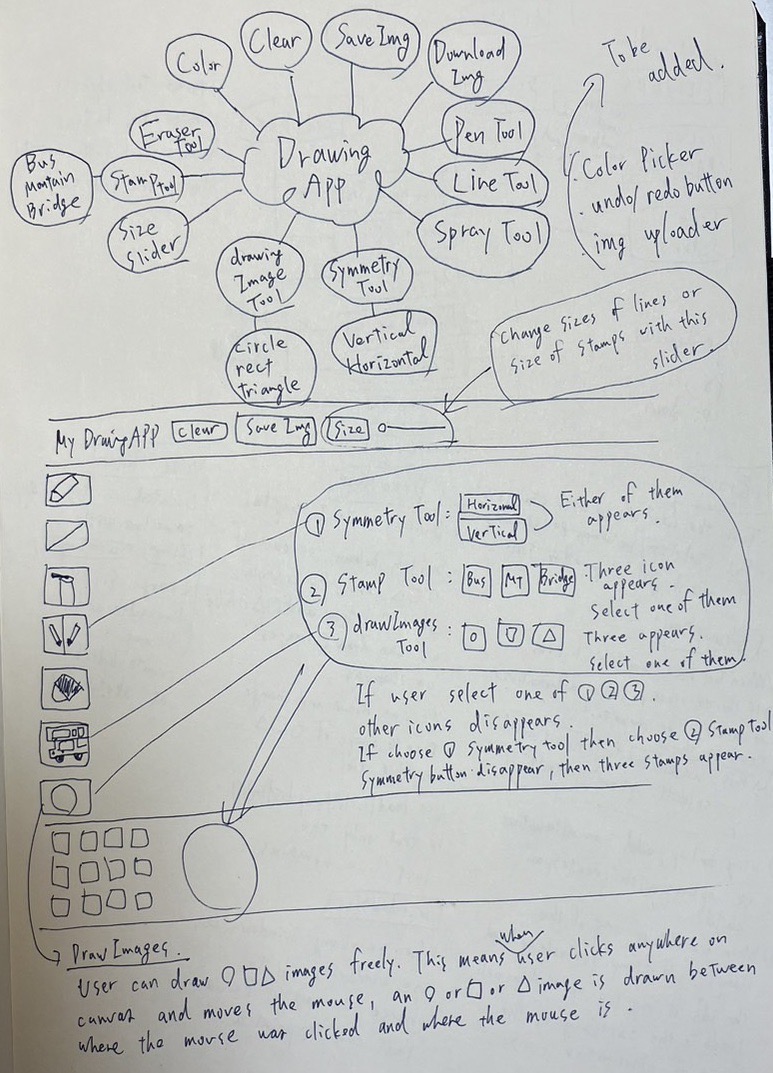 Color
Clear
Save Img
Download
Img
To be
added.
Eraser
Tool
Drawing
App
Pen Tool
Bus
Mantain
Bridge
Stamp Tool
Line Tool
. Color Picker
. undo/redo button
. img uploader
Size
Slider
Spray Tool
drawing
Image
Tool
Symmetry
Tool
Circle
rect
triangle
Vertical
Horizontal
Change sizes of lines or
size of stamps with this
slider.
My Drawing APP
Clear
Save Img
Size
① Symmetry Tool :
Horizonal
Vertical
Either of them
appears.
② Stamp Tool :
Bus
MT
Bridge
Three icon
appears.
Select one of them
③ drawImages
Tool :
Three appears.
select one of them.
If user select one of ① ② ③.
other icons disappears.
If choose ① Symmetry tool then choose ② Stamp Tool
Symmetry button disappear, then three stamps appear.
Draw Images.
User can draw ○ □ △ images freely. This means when user clicks anywhere on
canvas and moves the mouse, an ○ or □ or △ image is drawn between
where the mouse was clicked and where the mouse is.